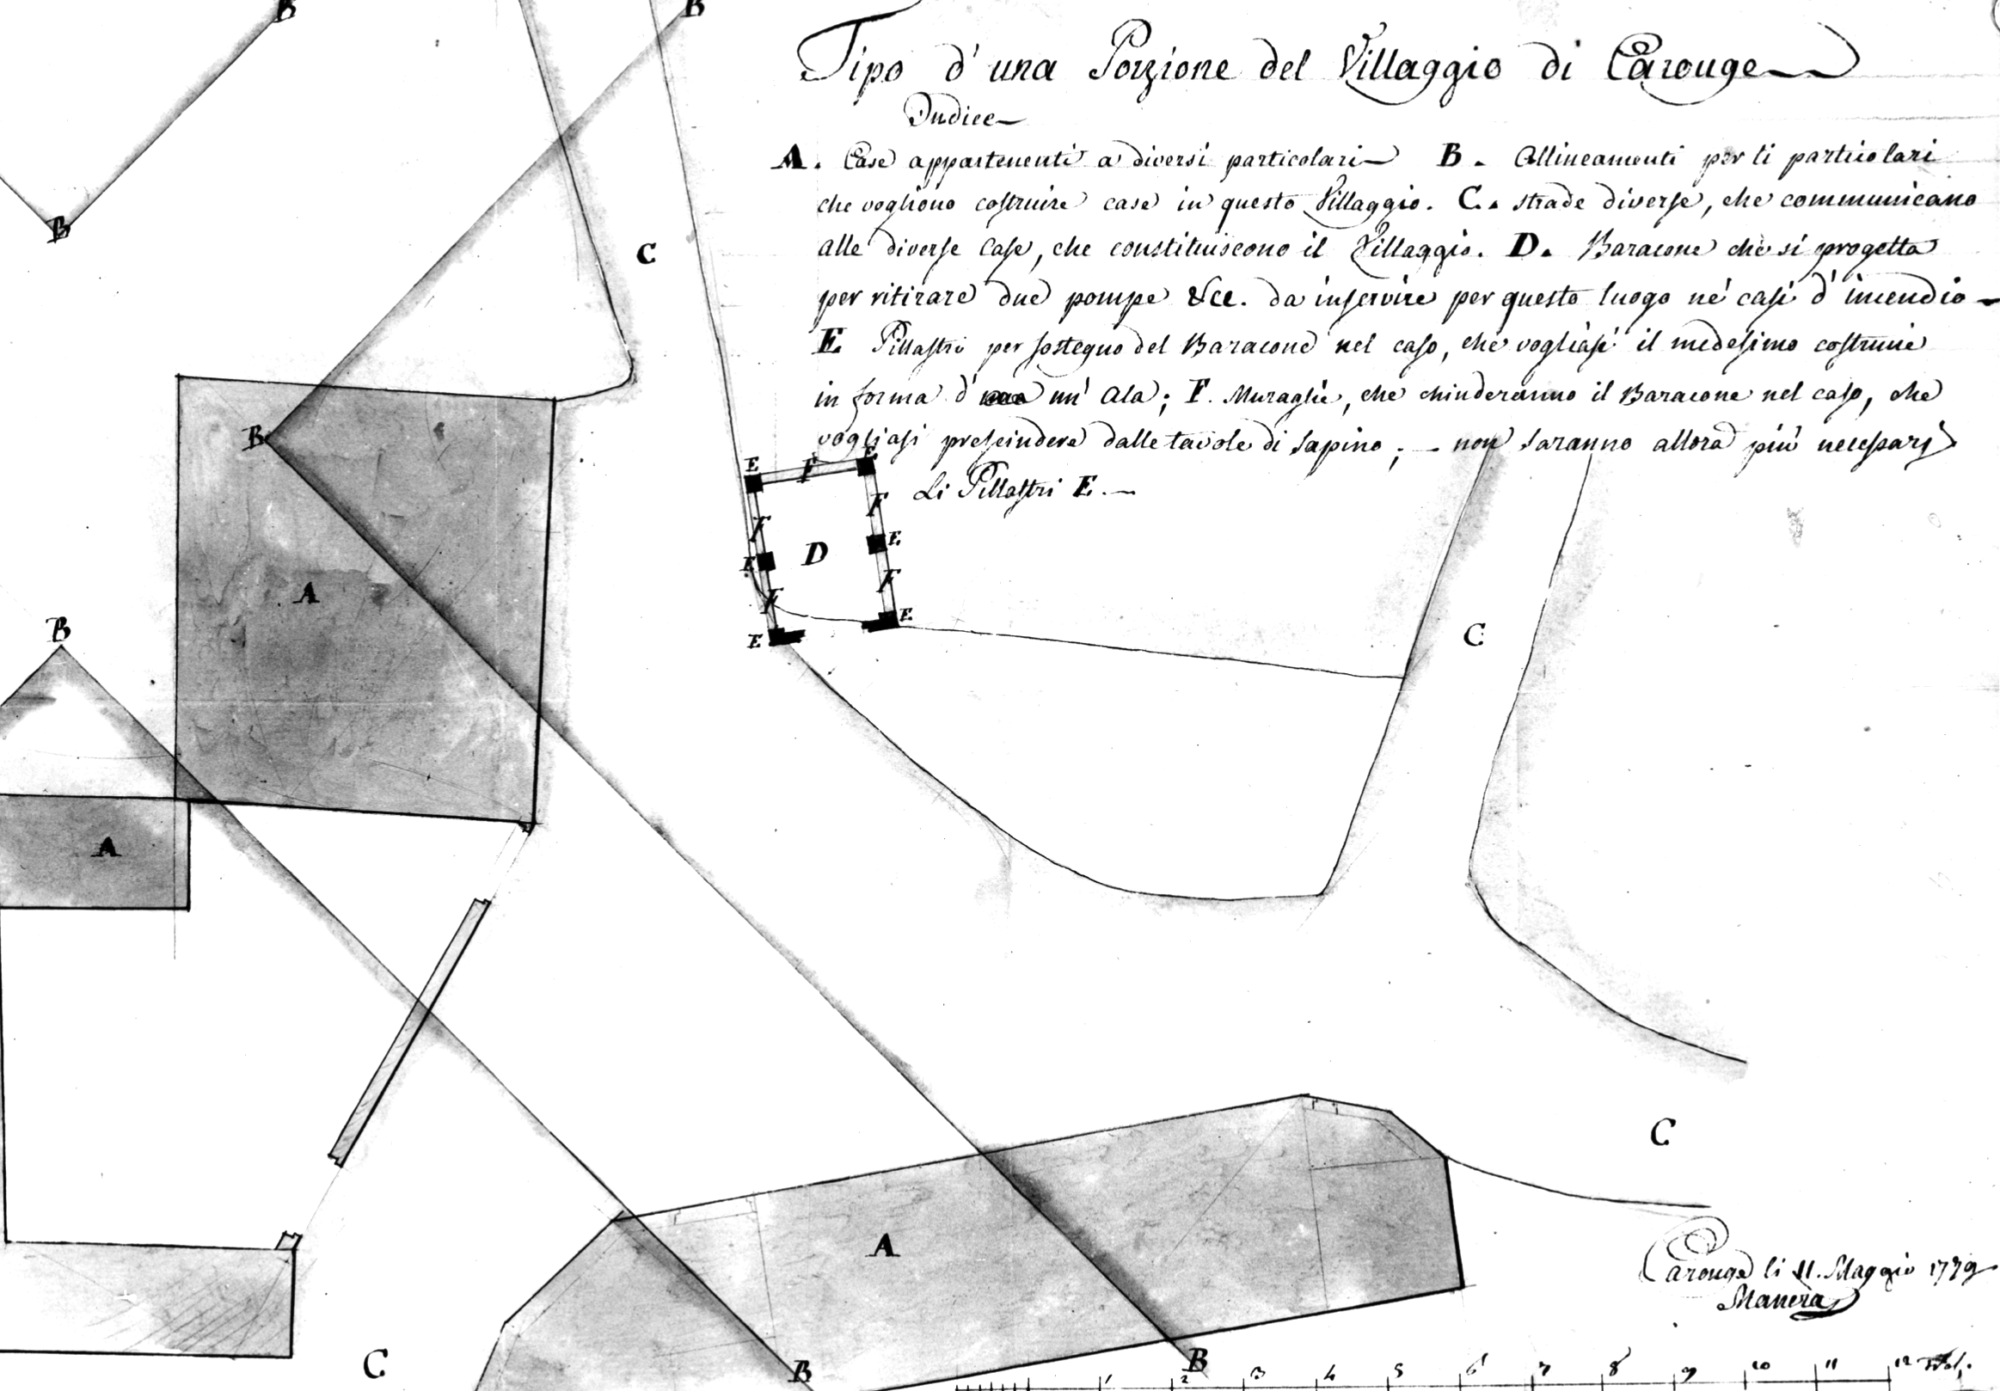 B
B
Tipo d' una Porzione del Villaggio di Carouge
Indice
A. Case appartenenti a diversi particolari B. Allineamenti per li particolari
che vogliono costruire case in questo Villaggio. C. strade diverse, che communicano
alle diverse Case, che constituiscono il Villaggio. D. Baracone che si progetta
per ritirare due pompe &cc. da inservire per questo luogo ne' casi d' incendio
E Pillastri per sostegno del Baracone nel caso, che vogliasi il medesimo costruire
in forma d' un' Ala; F. Muraglie, che chiuderanno il Baracone nel caso, che
vogliasi prescindere dalle tavole di Sapino; non saranno allora più necessarj
Li Pillastri E.
B
C
B
E
F
E
F
F
E
E
D
A
F
F
E
E
B
C
A
C
A
Carouge li 11. Maggio 1779
Manera
C
B
B
1 2 3 4 5 6 7 8 9 10 11 12